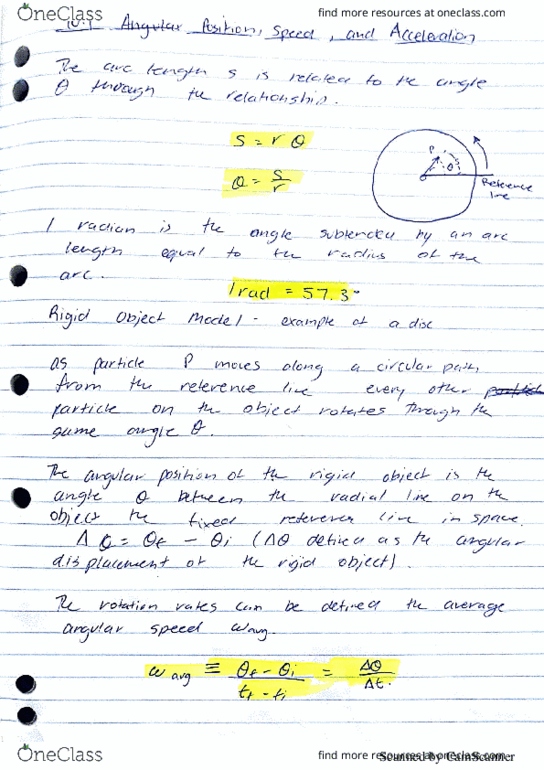 OneClass
find more resources at oneclass.com
10.1 Angular Position, Speed, and Acceleration
The arc length s is related to the angle
θ through the relationship.
s = r θ
θ = s/r
P
θ
Reference
line
1 radian is the angle subtended by an arc
length equal to the radius of the
arc.
1rad = 57.3°
Rigid Object Model - example of a disc
as particle P moves along a circular path,
from the reference line every other particle
particle on the object rotates through the
same angle θ.
The angular position of the rigid object is the
angle θ between the radial line on the
object the fixed reference line in space.
Δθ = θf - θi (Δθ defined as the angular
displacement of the rigid object).
The rotation rates can be defined the average
angular speed ωavg.
ωavg ≡ θf - θi / tf - ti = Δθ / Δt.
OneClass
find more resources at oneclass.com
Scanned by CamScanner